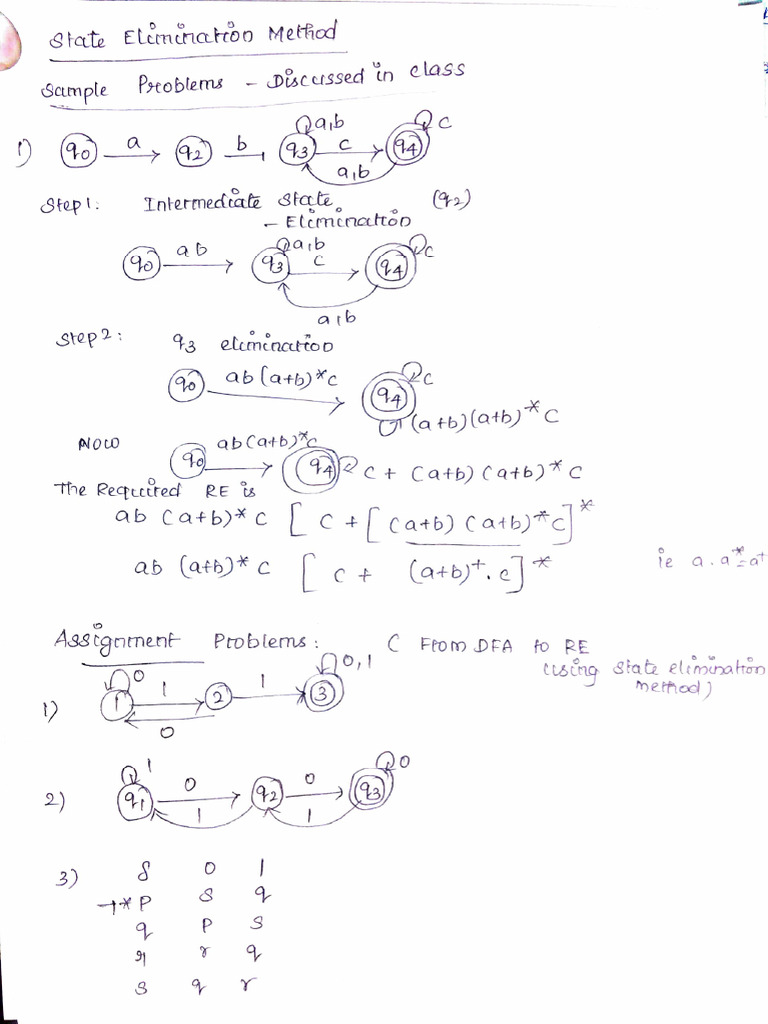 State Elimination Method
Sample Problems - Discussed in class
1) q0 a q2 b q3 a,b c a,b q4 c
Step1: Intermediate state (q2)
- Elimination
q0 ab q3 a,b c q4 c
a,b
Step2: q3 elimination
q0 ab(a+b)*c q4 c
(a+b)(a+b)*c
Now q0 ab(a+b)*c q4 c + (a+b)(a+b)*c
The Required RE is
ab (a+b)* c [ c + [ (a+b) (a+b)*c ]*
ab (a+b)* c [ c + (a+b)+. c ]* ie a.a* = a+
Assignment Problems: ( From DFA to RE
(using state elimination
method)
1) 1 0 1 2 1 3 0,1
0
2) q1 1 0 q2 0 q3 0
1 1
3) δ 0 1
→*p s q
q p s
r r q
s q r